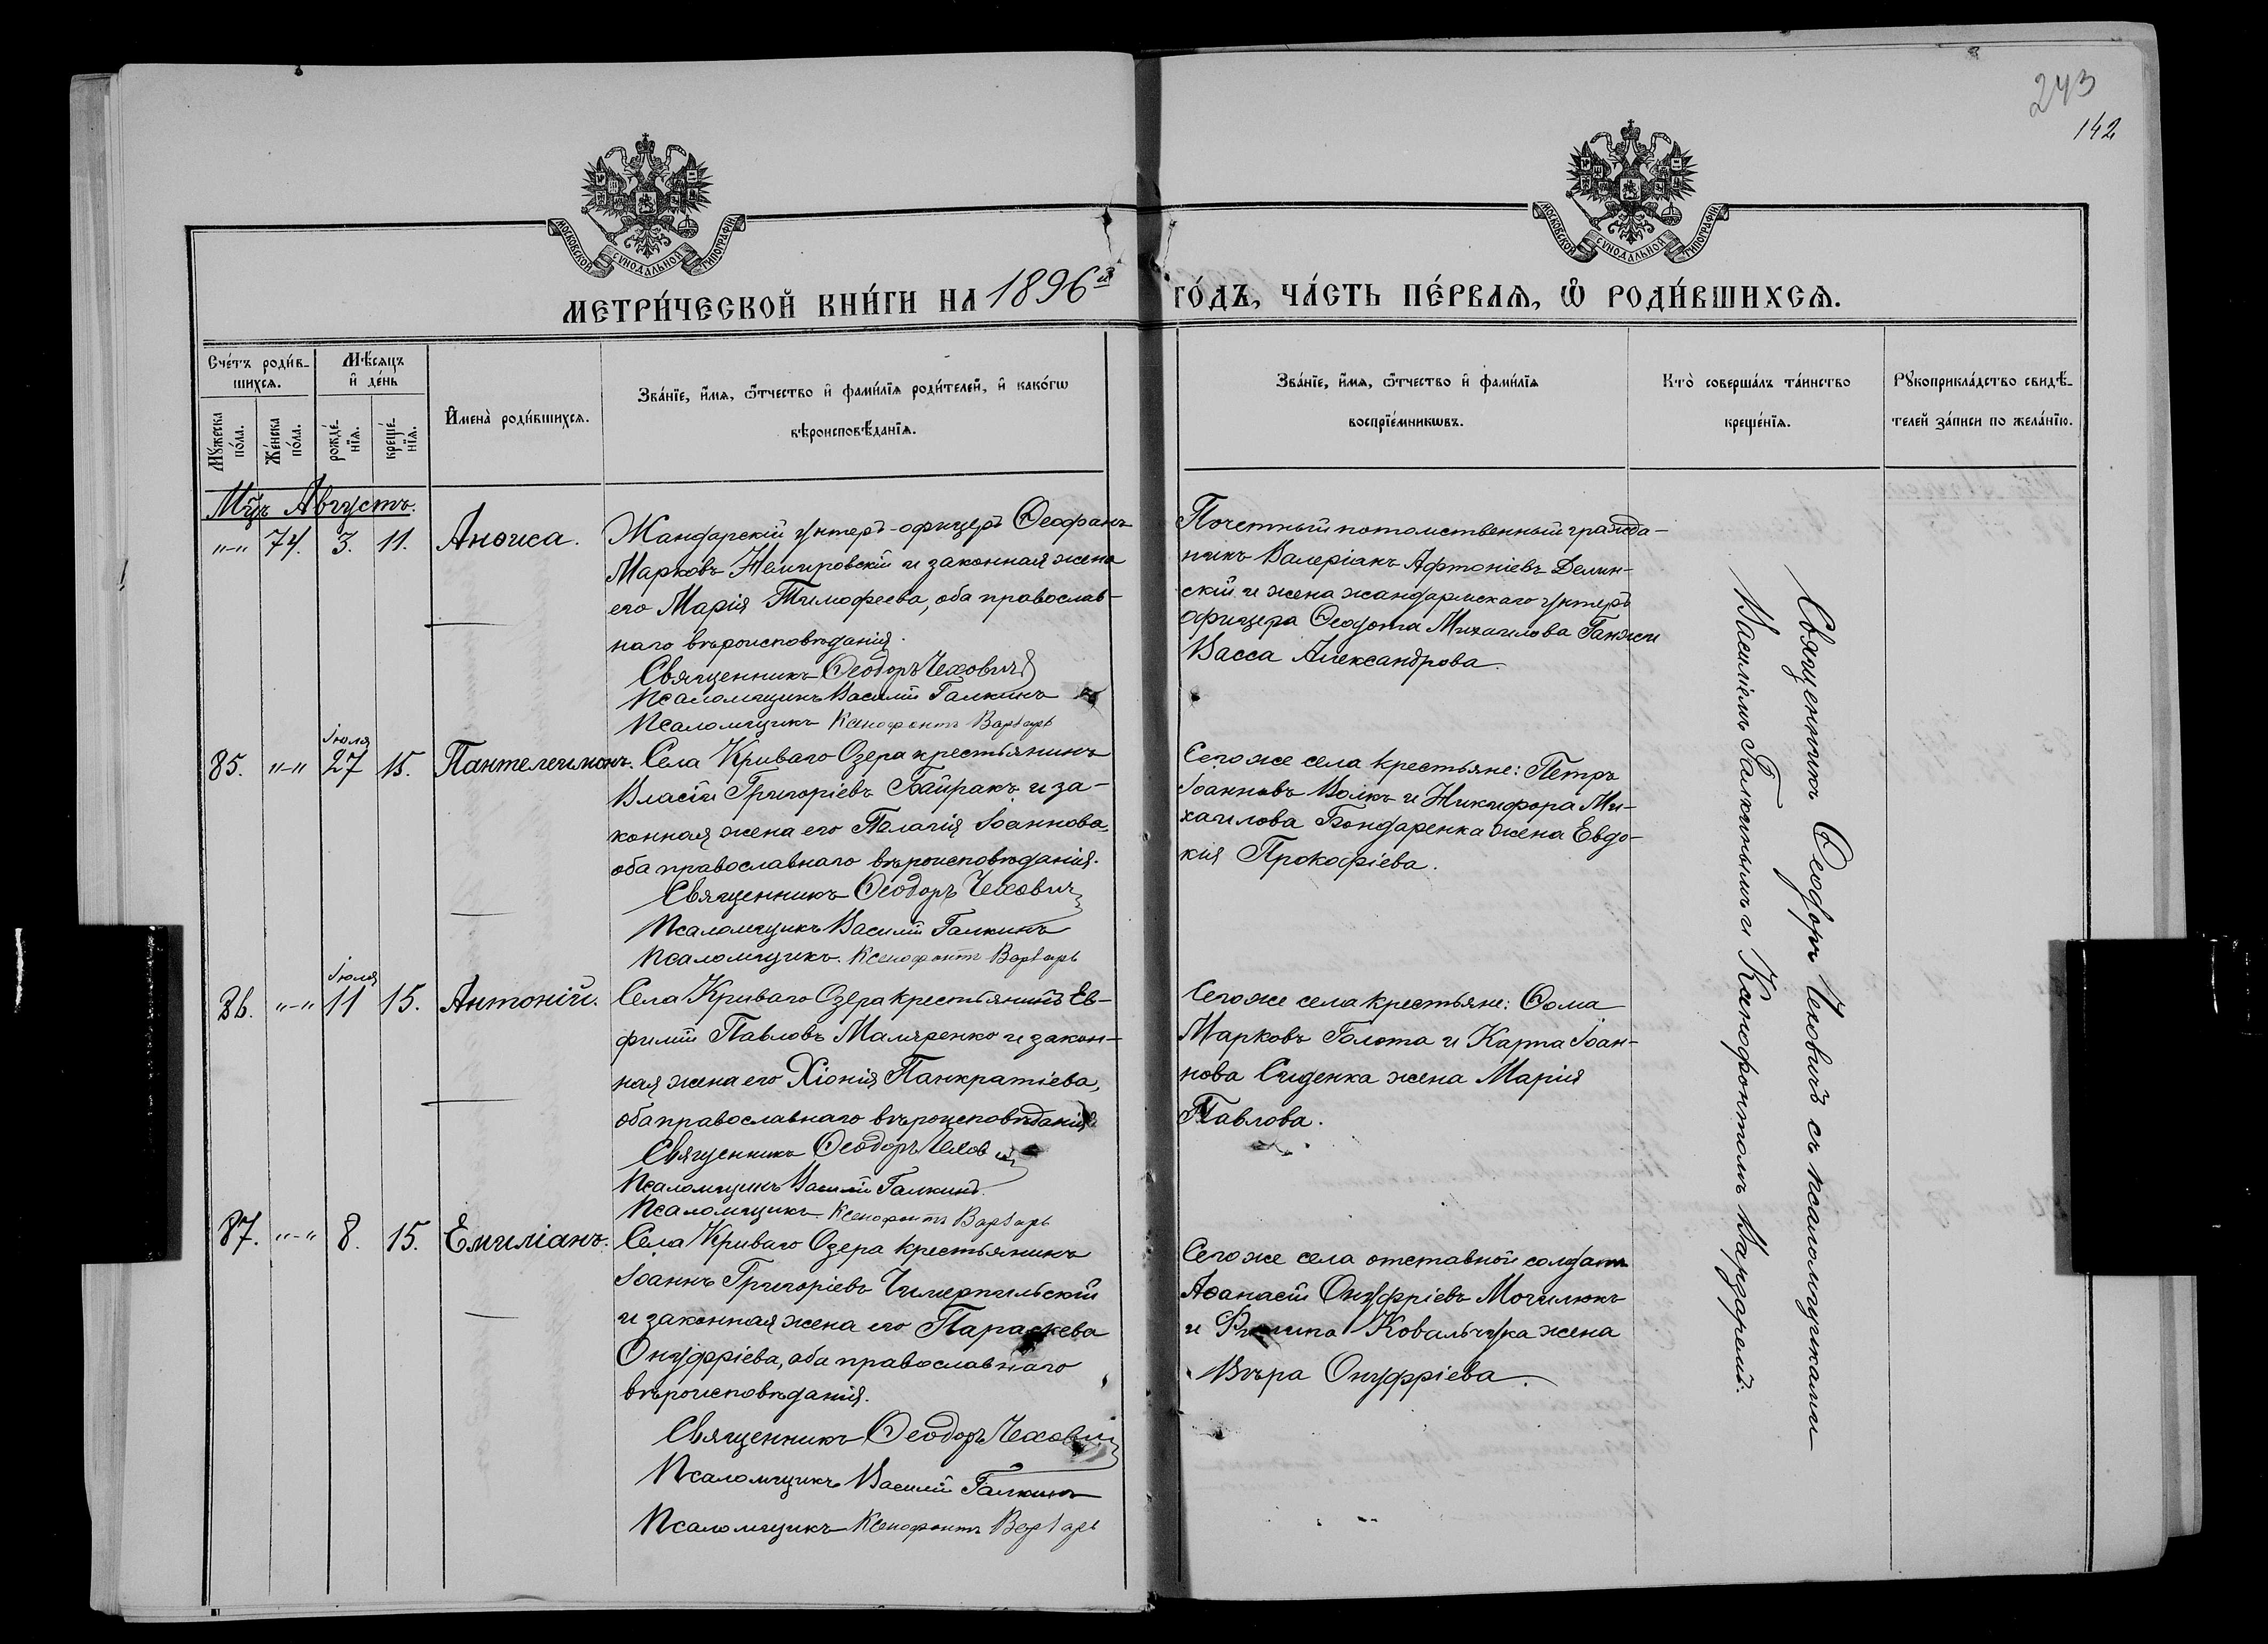 243
142
МОСКОВСКОЙ СѴНОДАЛЬНОЙ ТИПОГРАФІИ
МОСКОВСКОЙ СѴНОДАЛЬНОЙ ТИПОГРАФІИ
МЕТРИ́ЧЕСКОЙ КНИ́ГИ НА 1896й ГО́ДЪ, ЧА́СТЬ ПЕ́РВАѦ, Ѽ РОДИ́ВШИХСѦ.
Сче́тъ роди́в-
шихсѧ.
Мѣ́сѧцъ
и҆ де́нь
Мꙋ́жеска по́ла.
Же́нска по́ла.
рожде́-
нїѧ.
креще́-
нїѧ.
И҆мена̀ роди́вшихсѧ.
Зва́нїе, и҆́мѧ, ѻ҆́тчество и҆ фами́лїѧ роди́телей, и҆ како́гѡ
вѣроисповѣ́данїѧ.
Зва́нїе, и҆́мѧ, ѻ҆́тчество и҆ фами́лїѧ
воспрїе́мникѡвъ.
Кто̀ соверша́лъ та́инство
креще́нїѧ.
Рꙋкоприкла́дство свидѣ́-
телей за́писи по жела́нїю.
Мцъ Августъ.
"-" 74. 3. 11. Анѳиса.
Жандарскій унтеръ-офицеръ Ѳеофанъ
Марковъ Немировскій и законная жена
его Марія Тимофеева, оба православ-
наго вѣроисповѣданія.
Священникъ Ѳеодоръ Чехович
Псаломщикъ Василій Галкинъ
Псаломщикъ Ксенофонтъ Варзарь
Почетный потомственный гражда-
никъ Валеріанъ Афтоніевъ Делин-
скій и жена жандармскаго унтеръ
офицера Ѳеодота Михаилова Ганжи
Васса Александрова.
85. "-" Іюля 27 15. Пантелеимонъ.
Села Криваго Озера крестьянинъ
Власій Григоріевъ Байракъ и за-
конная жена его Пелагія Іоаннова,
оба православнаго вѣроисповѣданія.
Священникъ Ѳеодоръ Чехович
Псаломщикъ Василій Галкинъ
Псаломщикъ. Ксенофонтъ Варзарь
Сегоже села крестьяне: Петръ
Іоанновъ Волкъ и Никифора Ми-
хаилова Бондаренка жена Евдо-
кія Прокофіева.
86. "-" Іюля 11 15. Антоній.
Села Криваго Озера крестьянинъ Ев-
фимій Павловъ Маляренко и закон-
ная жена его Хіонія Панкратіева,
оба православнаго вѣроисповѣданія
Священникъ Ѳеодоръ Чехов
Псаломщикъ Василій Галкинъ.
Псаломщикъ. Ксенофонтъ Варзарь
Сегоже села крестьяне: Ѳома
Марковъ Голота и Карпа Іоан-
нова Сиденка жена Марія
Павлова.
87. "-" 8. 15. Емиліанъ.
Села Криваго Озера крестьянинъ
Іоаннъ Григоріевъ Чимерпильскій
и законная жена его Параскева
Онуфріева, оба православнаго
вѣроисповѣданія.
Священникъ Ѳеодоръ Чехович
Псаломщикъ Василій Галкинъ
Псаломщикъ Ксенофонтъ Варзарь
Сегоже села отставной солдатъ
Аѳанасій Онуфріевъ Могилюкъ
и Ковальчука жена
Вѣра Онуфріева.
Священникъ Ѳеодоръ Чеховичъ съ псаломщиками
Василіемъ Галкинымъ и Ксенофонтомъ Варзаремъ.